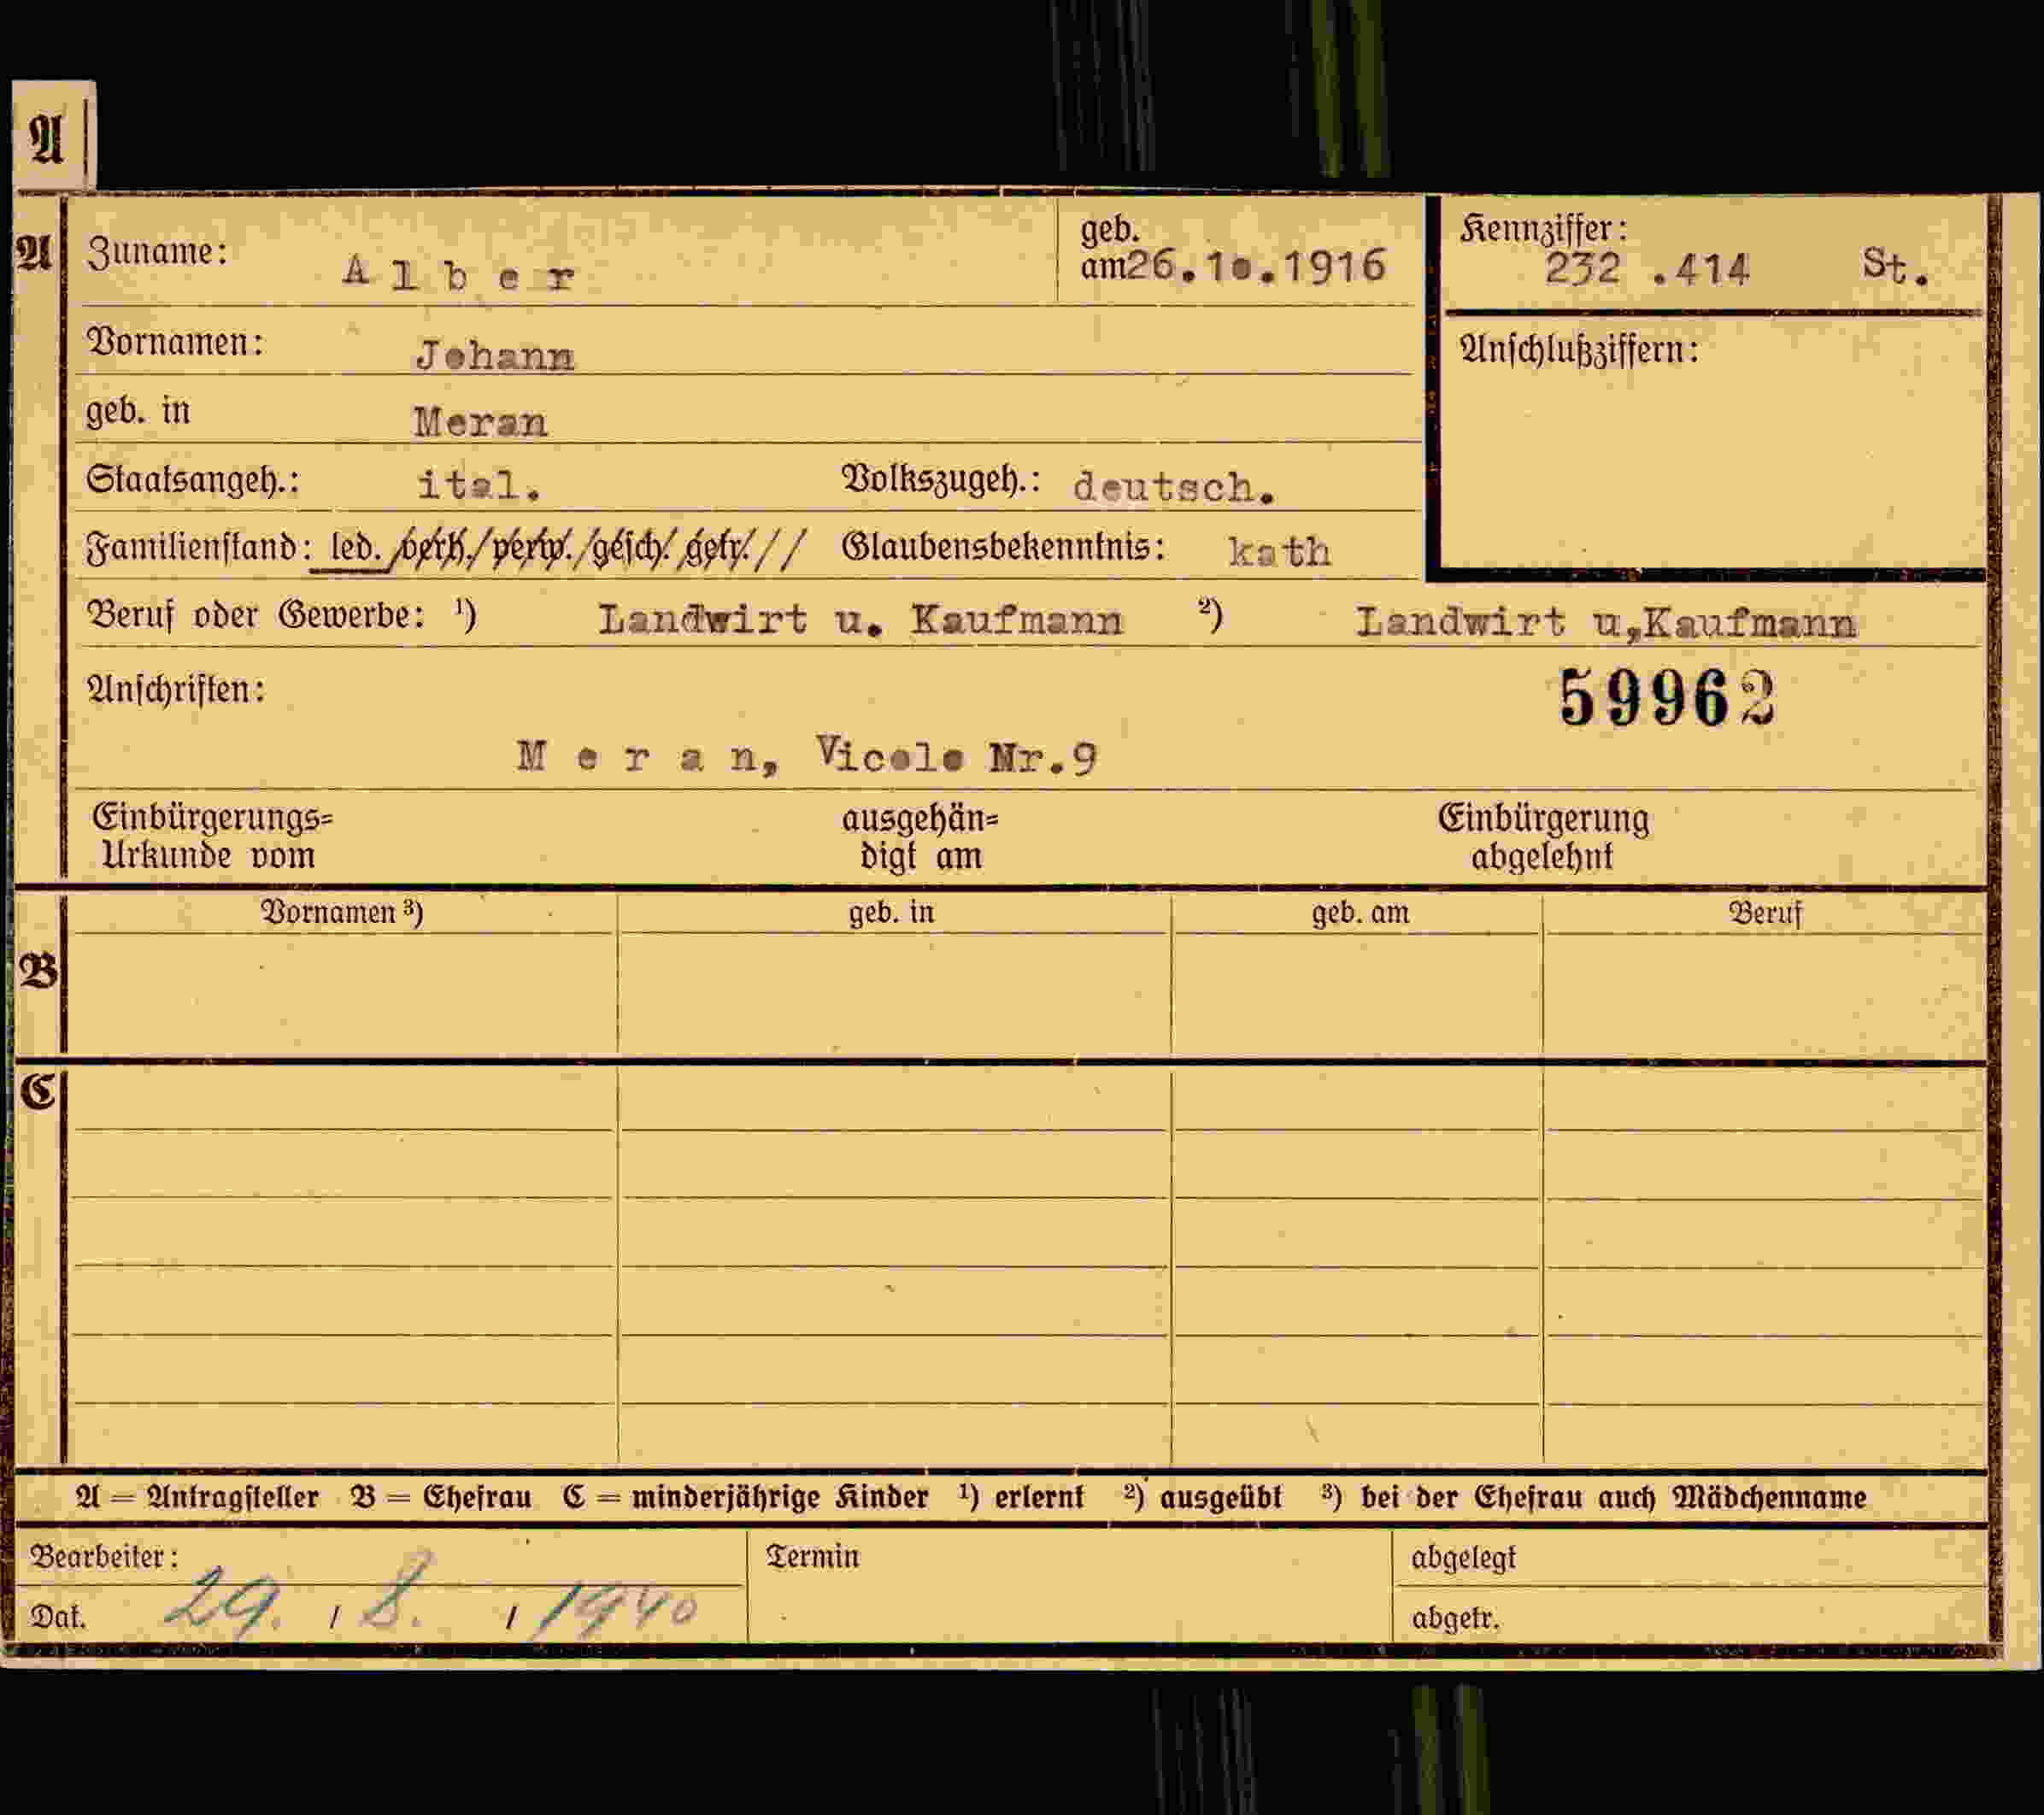 A
A Zuname: Alber geb. am 26.10.1916 Kennziffer: 232 .414 St.
Vornamen: Johann Anschlußziffern:
geb. in Meran
Staatsangeh.: ital. Volkszugeh.: deutsch.
Familienstand: led. /verh./verw./gesch./getr.// Glaubensbekenntnis: kath
Beruf oder Gewerbe: ¹) Landwirt u. Kaufmann ²) Landwirt u,Kaufmann
Anschriften: 59962
Meran, Vicolo Nr.9
Einbürgerungs= ausgehän= Einbürgerung
Urkunde vom digt am abgelehnt
Vornamen ³) geb. in geb. am Beruf
B
C
A = Antragsteller B = Ehefrau C = minderjährige Kinder ¹) erlernt ²) ausgeübt ³) bei der Ehefrau auch Mädchenname
Bearbeiter: Termin abgelegt
Dat. 29. / 8. / 1940 abgetr.